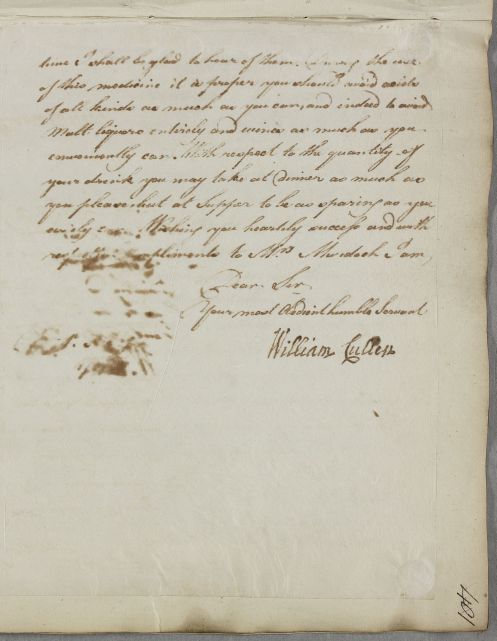 time I shall be glad to hear of them. During the use
of this medicine it is proper you should avoid acids
of all kinds as much as you can, and indeed to avoid
Malt liquors entirely and wines as much as you
conveniently can. With respect to the quantity of
your drink you may take at Dinner as much as
you please but at Supper to be as sparing as you
easily can. Wishing you heartily success and with
respectful compliments to Mrs Murdoch I am,
Dear Sir
Your most Obedient humble Servant
William Cullen
401